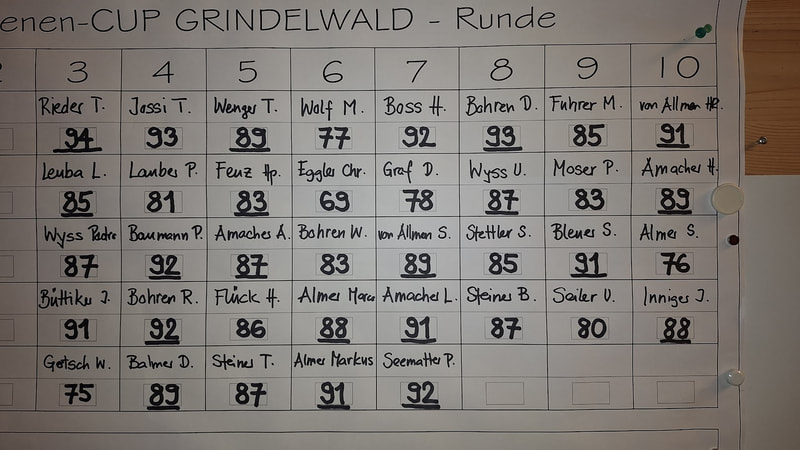 enen-CUP GRINDELWALD - Runde
3 4 5 6 7 8 9 10
Rieder T. Jossi T. Wenger T. Wolf M. Boss H. Bohren D. Fuhrer M. von Allmen HP.
94 93 89 77 92 93 85 91
Leuba L. Lauber P. Feuz Hp. Eggler Chr. Graf D. Wyss U. Moser P. Amacher H.
85 81 83 69 78 87 83 89
Wyss Baumann P. Amacher A. Bohren W. von Allmen S. Stettler S. Bleuer S. Almer S.
87 92 87 83 89 85 91 76
Büttiker J. Bohren R. Flück H. Almer Amacher L. Steiner B. Seiler U. Inniger J.
91 92 86 88 91 87 80 88
Gertsch W. Balmer D. Steiner T. Almer Markus Seematter P.
75 89 87 91 92